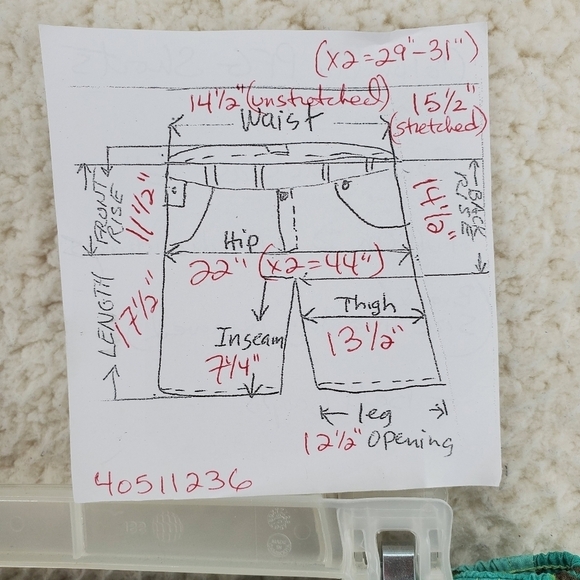 (x2=29"-31")
14 1/2" (unstretched)
Waist
15 1/2"
(stretched)
FRONT
RISE
11 1/2"
BACK
RISE
Hip
22" (x2=44")
LENGTH
17 1/2"
Thigh
13 1/2"
Inseam
7 1/4"
leg
12 1/2" Opening
40511236